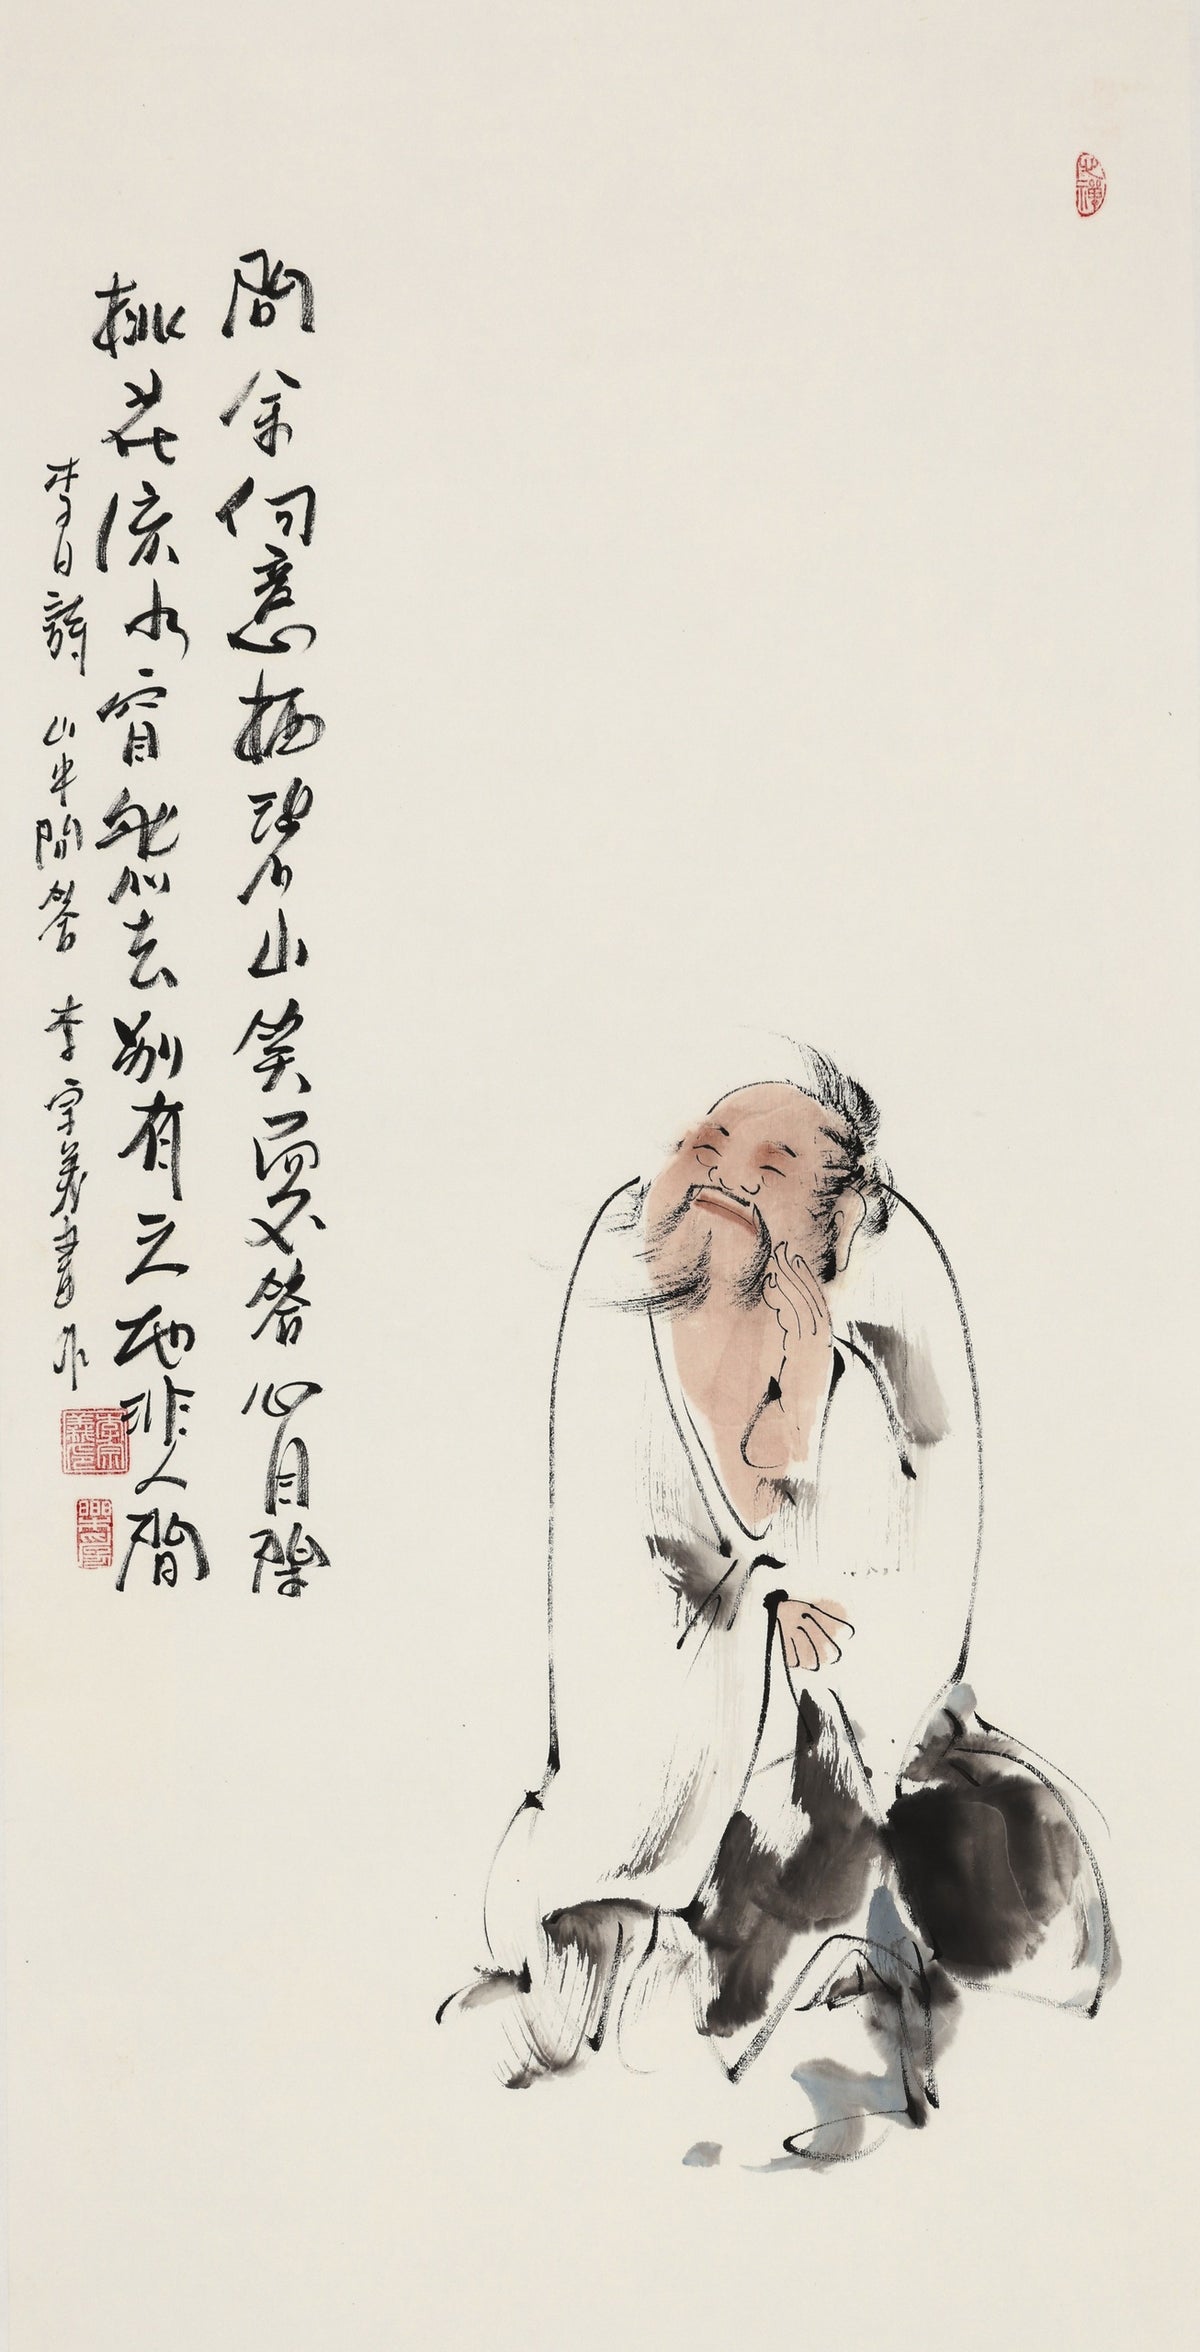 問余何意栖碧山笑而不答心自閑
桃花流水窅然去別有天地非人間
李白詩 山中問答 李宗義書作
李宗義印